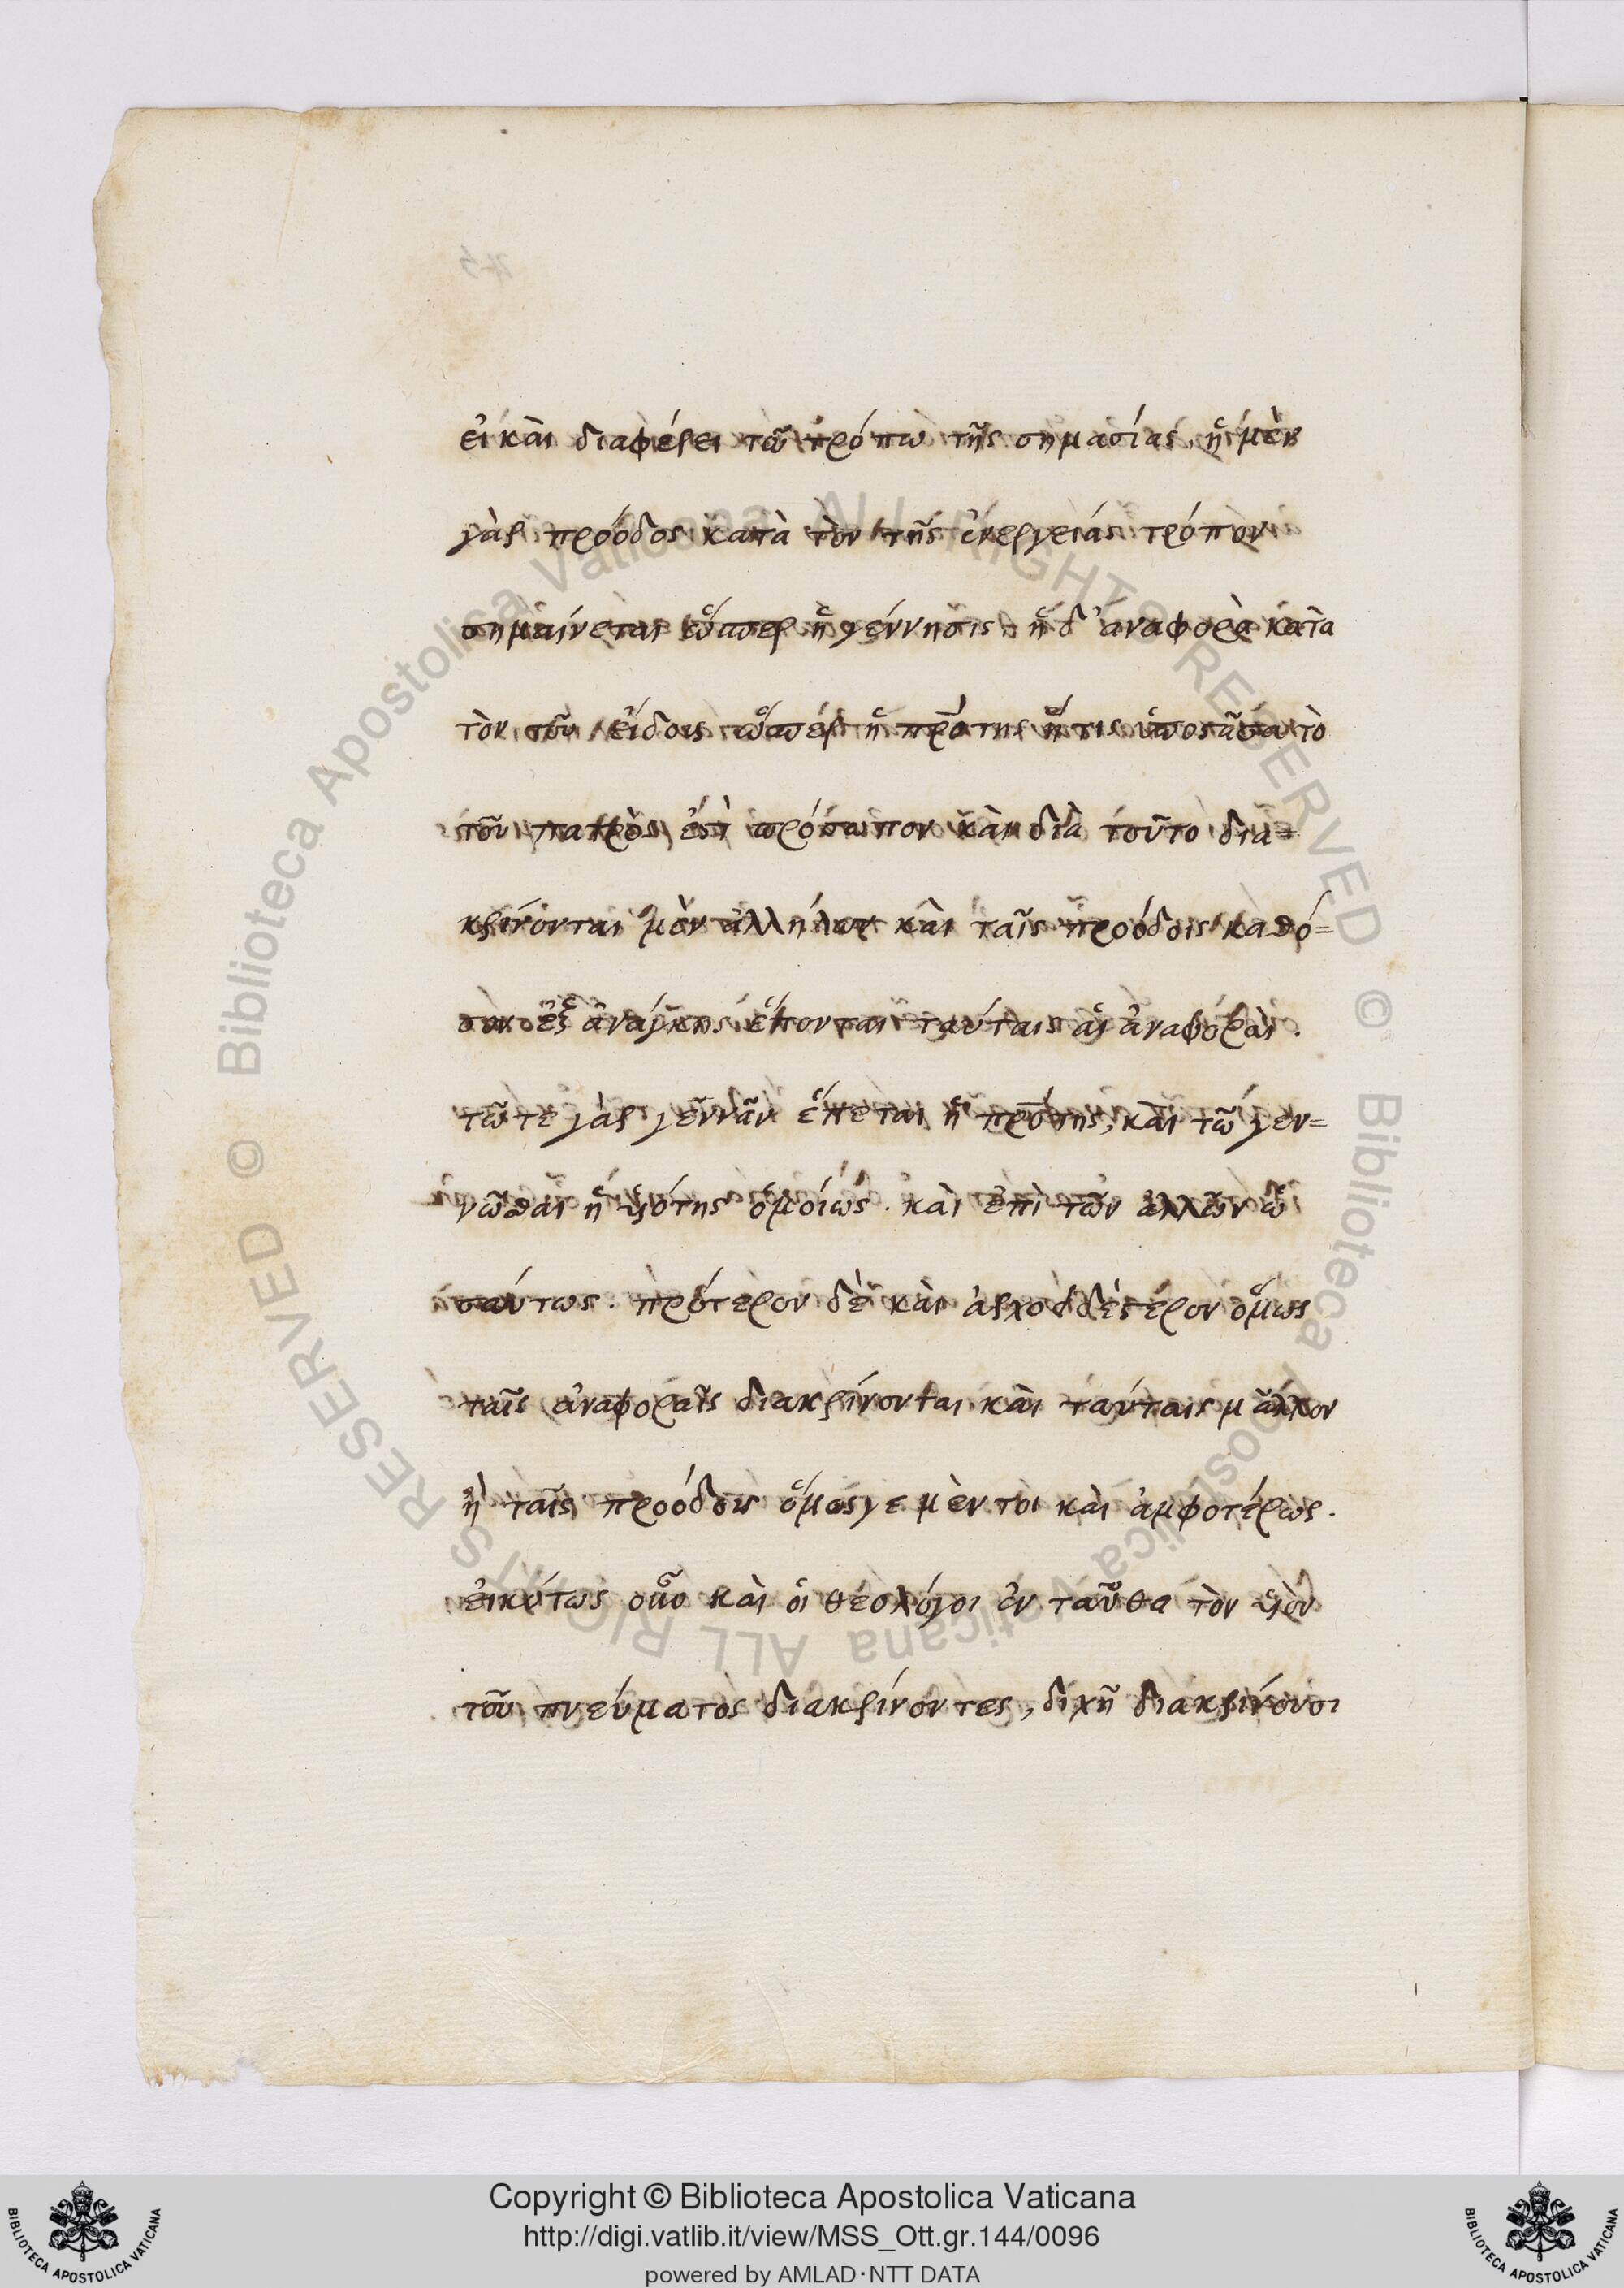 εἰ καὶ διαφέρει τῶ τρόπω τῆς σημασίας, ἡ μὲν
γὰρ πρόοδος κατὰ τὸν τῆς ἐνεργείας τρόπον
σημαίνεται ὥσπερ ἡ γέννησις. ἡ δ' ἀναφορὰ κατὰ
τὸν τοῦ εἴδους ὥσπερ ἡ πρότης ἥτις
τοῦ πατρὸς ἐστὶ πρόσωπον καὶ διὰ τοῦτο δια=
κρίνονται μὲν ἀλλήλων καὶ ταῖς προόδοις καθό=
σον ἐξ ἀνάγκης ἕπονται ταύταις αἱ ἀναφοραὶ.
τῶ τε γὰρ γεννᾶν ἕπεται ἡ πρότης, καὶ τῶ γεν=
νᾶσθαι ἡ υἱότης ὁμοίως. καὶ ἐπὶ τῶν ἄλλων ὡ
σαύτως. πρότερον δὲ καὶ ἀρχοειδέστερον ὅμως
ταῖς ἀναφοραῖς διακρίνονται καὶ ταύταις μᾶλλον
ἢ ταῖς προόδοις ὅμως γε μὲν τοι καὶ ἀμφοτέρως.
εἰκότως οὖν καὶ οἱ θεολόγοι ἐν ταῦθα τὸν υἱὸν
τοῦ πνεύματος διακρίνοντες, διχῆ διακρίνουσι
© Biblioteca Apostolica Vaticana ALL RIGHTS RESERVED
© Biblioteca Apostolica Vaticana ALL RIGHTS RESERVED
Copyright © Biblioteca Apostolica Vaticana
http://digi.vatlib.it/view/MSS_Ott.gr.144/0096
powered by AMLAD·NTT DATA
BIBLIOTECA APOSTOLICA VATICANA
BIBLIOTECA APOSTOLICA VATICANA